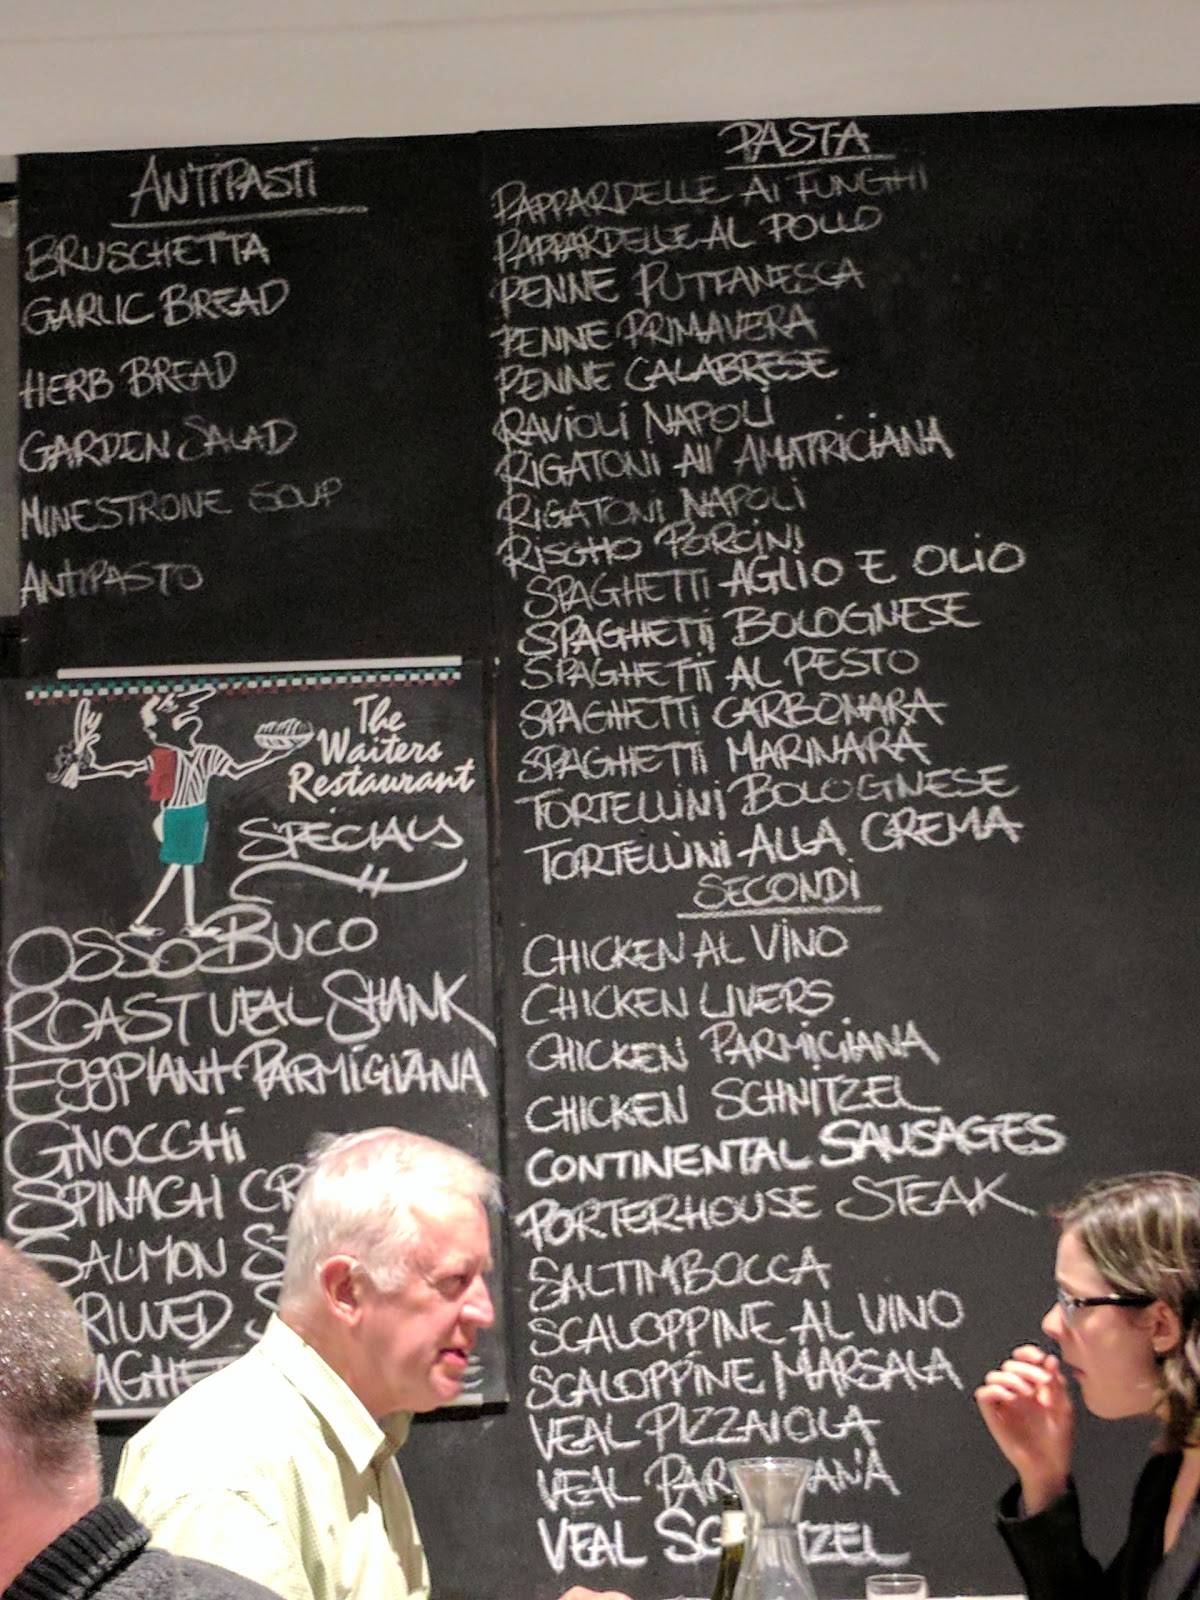 ANTIPASTI
BRUSCHETTA
GARLIC BREAD
HERB BREAD
GARDEN SALAD
MINESTRONE SOUP
ANTIPASTO
The
Waiters
Restaurant
SPECIALS
OSSO BUCO
ROAST VEAL SHANK
EggPlANt PARMiGIANA
GNOCCHi
SPINACH
SALMON
PASTA
PAPPARDELLE Ai FUNGHi
PAPPARDELLE AL POLLO
PENNE PUTTANESCA
PENNE PRIMAVERA
PENNE CALABRESE
RAViOLi NAPOLi
RIGATONI All' AMATRICIANA
RIGATONI NAPOLI
RISOttO PORCINI
SPAGHETTI AGLIO E OLIO
SPAGHETTI BOLOGNESE
SPAGHETTI AL PESTO
SPAGHETTI CARBONARA
SPAGHETTI MARINARA
TORTELLINI BOLOGNESE
TORTELLINI ALLA CREMA
SECONDI
CHICKEN AL VINO
CHICKEN LIVERS
CHICKEN PARMIGIANA
CHICKEN SCHNITZEL
CONTINENTAL SAUSAGES
PORTERHOUSE STEAK
SALTIMBOCCA
SCALOPPINE AL VINO
SCALOPPINE MARSALA
VEAL PIZZAIOLA
VEAL
VEAL